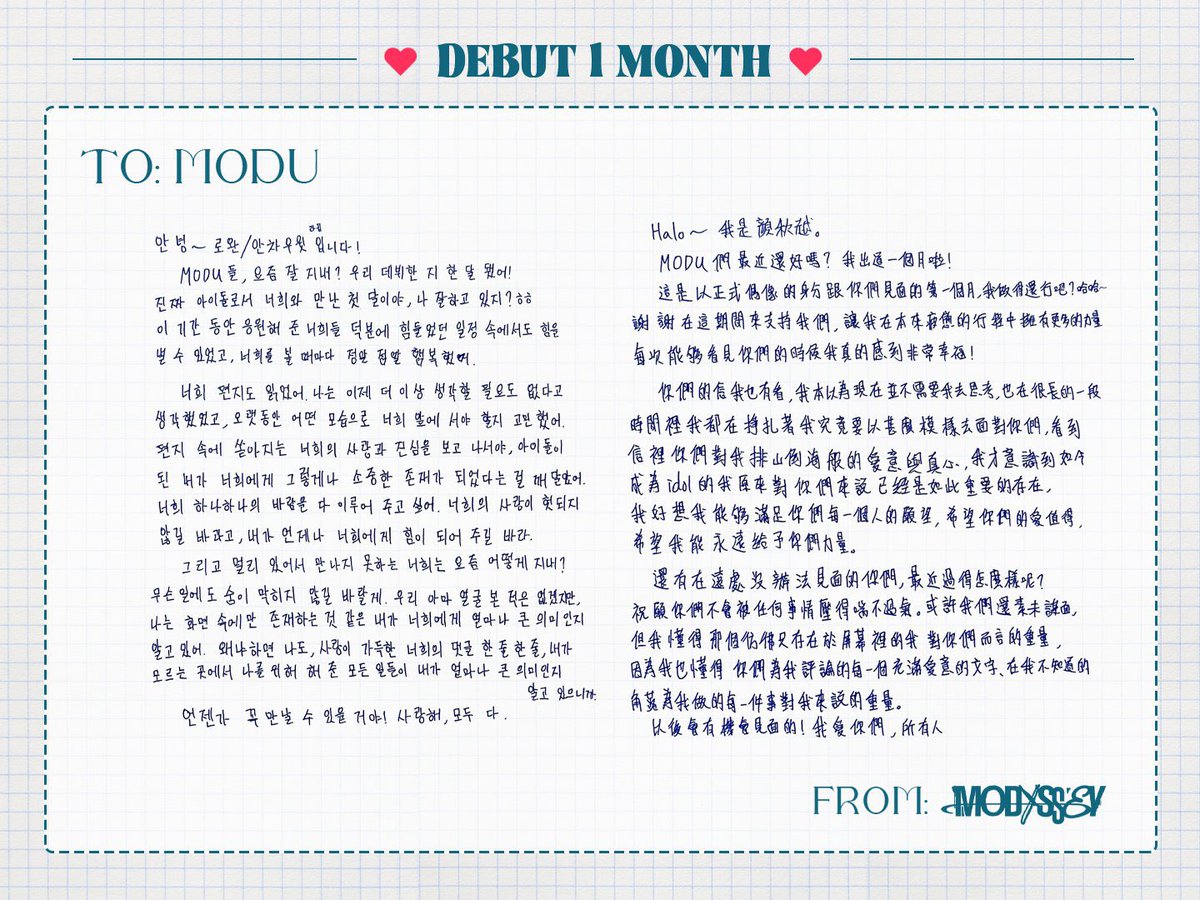 DEBUT 1 MONTH
TO: MODU
안녕~ 로완/안차우웟 입니다!
MODU들, 요즘 잘 지내? 우리 데뷔한 지 한 달 됐어!
진짜 아이돌로서 너희와 만난 첫 달이야, 나 잘하고 있지? ㅎㅎ
이 기간 동안 응원해 준 너희들 덕분에 힘들었던 일정 속에서도 힘을
낼 수 있었고, 너희를 볼 때마다 정말 정말 행복했어.
너희 편지도 읽었어. 나는 이제 더 이상 생각할 필요도 없다고
생각했었고, 오랫동안 어떤 모습으로 너희 앞에 서야 할지 고민했어.
편지 속에 쏟아지는 너희의 사랑과 진심을 보고 나서야, 아이돌이
된 내가 너희에게 그렇게나 소중한 존재가 되었다는 걸 깨달았어.
너희 하나하나의 바람을 다 이루어 주고 싶어. 너희의 사랑이 헛되지
않길 바라고, 내가 언제나 너희에게 힘이 되어 주길 바라.
그리고 멀리 있어서 만나지 못하는 너희는 요즘 어떻게 지내?
무슨 일에도 숨이 막히지 않길 바랄게. 우리 아마 얼굴 본 적은 없겠지만,
나는 화면 속에만 존재하는 것 같은 내가 너희에게 얼마나 큰 의미인지
알고 있어. 왜냐하면 나도, 사랑이 가득한 너희의 댓글 한 줄 한 줄, 내가
모르는 곳에서 나를 위해 해 준 모든 일들이 내가 얼마나 큰 의미인지
알고 있으니까.
언젠가 꼭 만날 수 있을 거야! 사랑해, 모두 다.
Halo~ 我是顏秋越。
MODU們最近還好嗎? 我出道一個月啦!
這是以正式偶像的身分跟你們見面的第一個月, 我做得還行吧? 哈哈~
謝謝在這期間來支持我們, 讓我在本來疲憊的行程中擁有更多的力量
每次能夠看見你們的時候我真的感到非常幸福!
你們的信我也有看, 我本以為現在並不需要我去思考, 也在很長的一段
時間裡我都在掙扎著我究竟要以甚麼模樣去面對你們, 看到
信裡你們對我排山倒海般的愛意與真心, 我才意識到如今
成為idol的我原來對你們來說已經是如此重要的存在,
我好想我能夠滿足你們每一個人的願望, 希望你們的愛值得,
希望我能永遠給予你們力量。
還有在遠處沒辦法見面的你們, 最近過得怎麼樣呢?
祝願你們不會被任何事情壓得喘不過氣。或許我們還素未謀面,
但我懂得那個仿佛只存在於屏幕裡的我對你們而言的重量,
因為我也懂得你們為我評論的每一個充滿愛意的文字、在我不知道的
角落為我做的每一件事對我來說的重量。
以後會有機會見面的! 我愛你們, 所有人
FROM: MODYSSEY